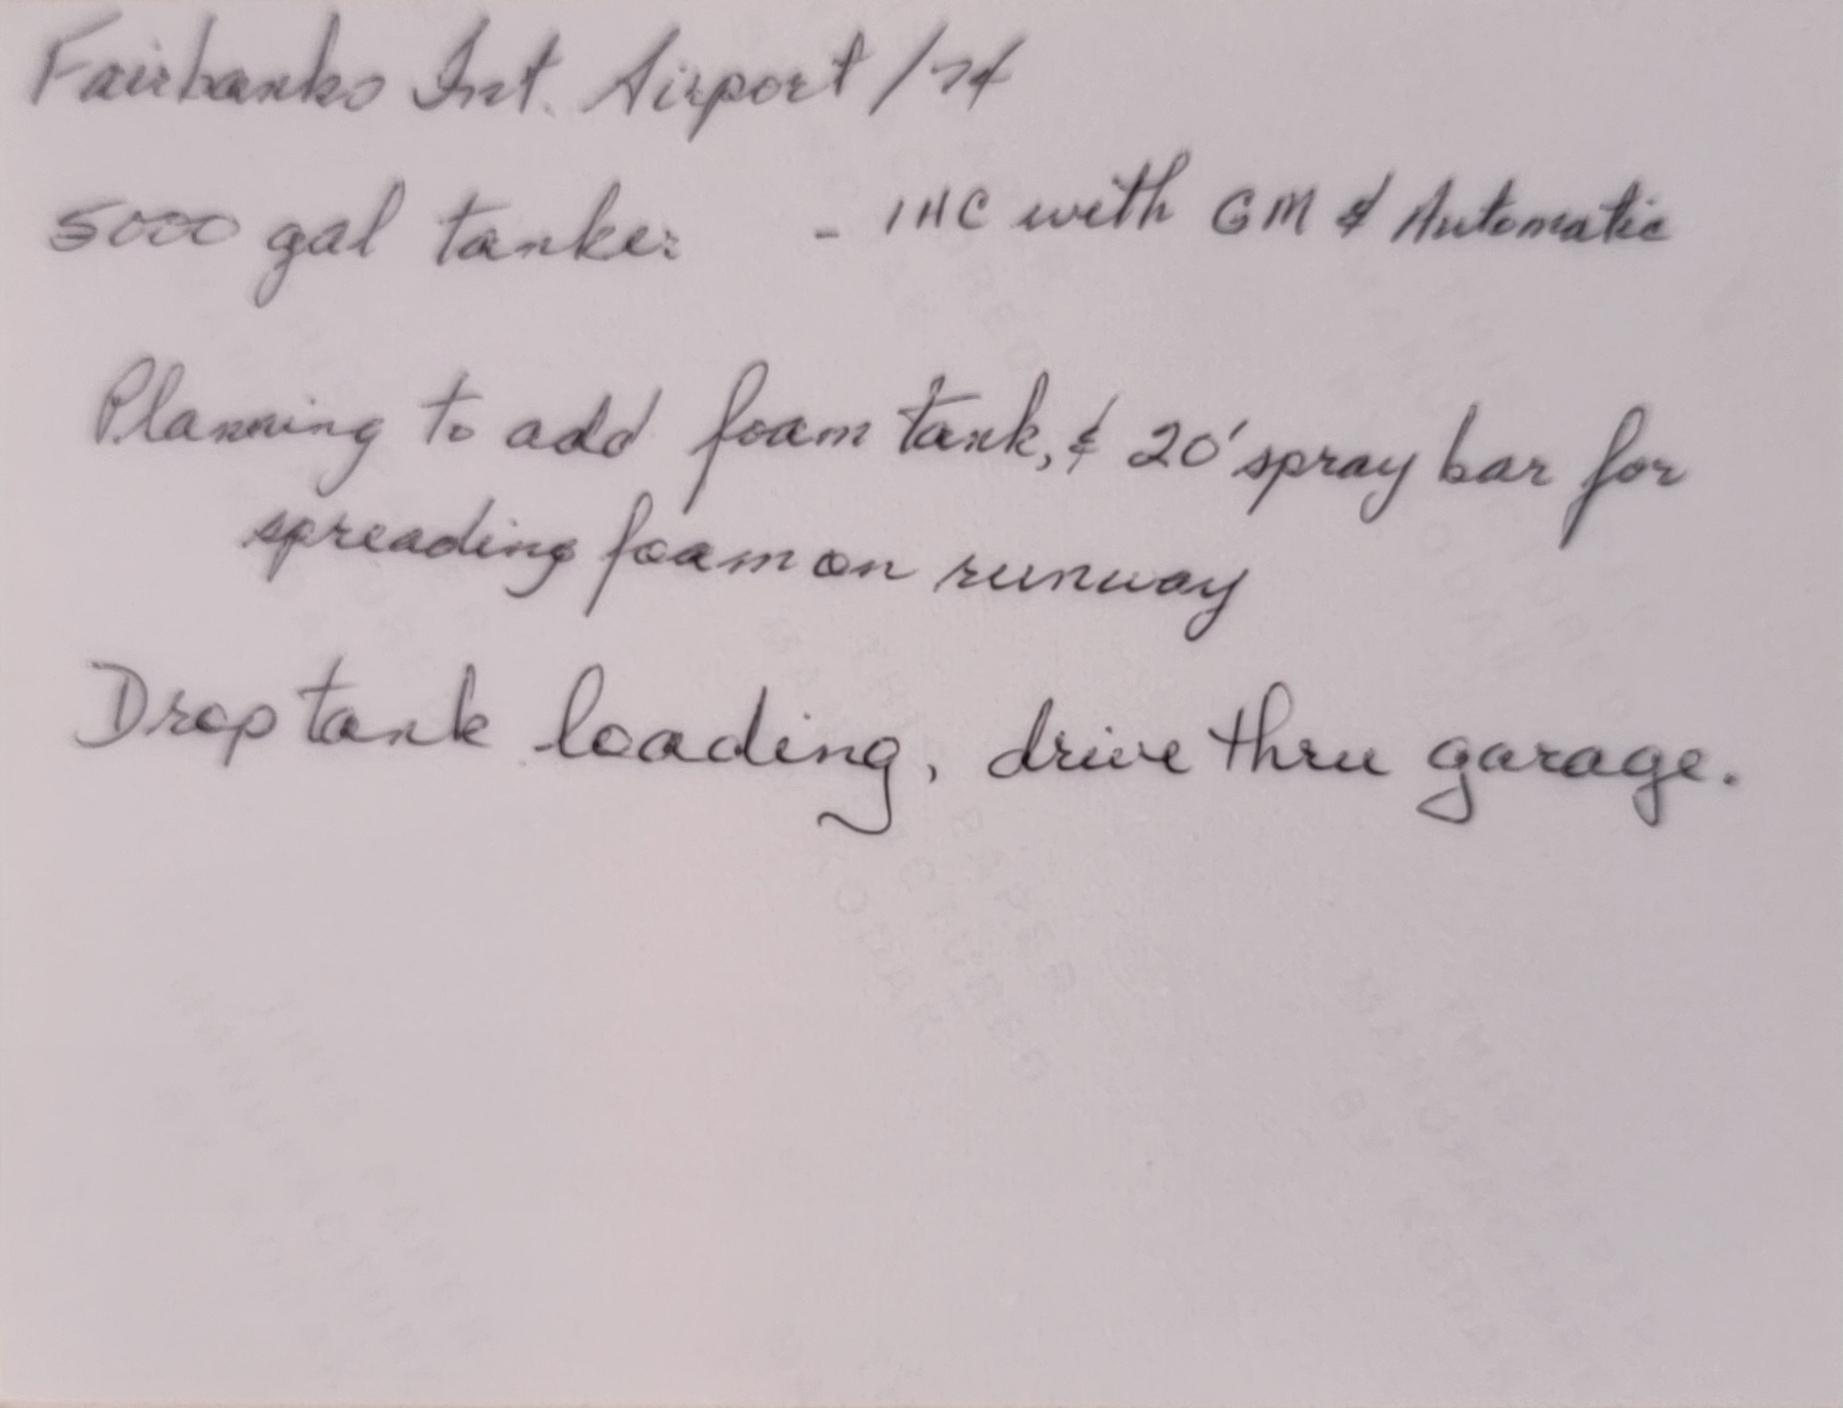 Fairbanks Int. Airport /74
5000 gal tanker - IHC with GM & Automatic
Planning to add foam tank, & 20' spray bar for
spreading foam on runway
Drop tank loading, drive thru garage.